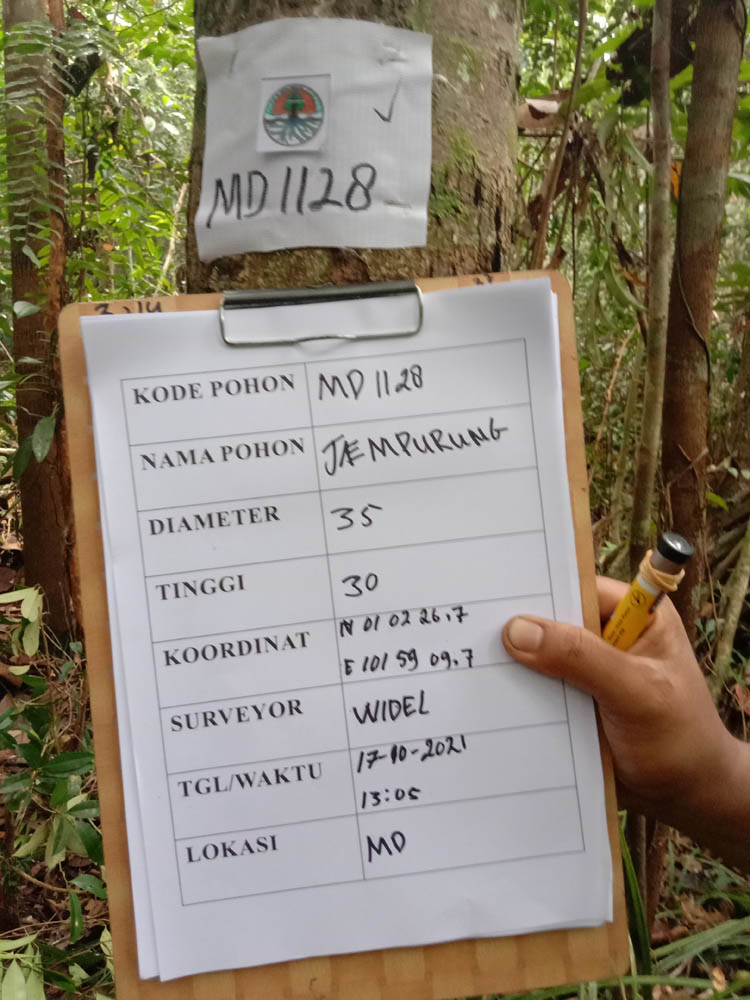 MD 1128
KODE POHON MD 1128
NAMA POHON JÆMPURUNG
DIAMETER 35
TINGGI 30
KOORDINAT N 01 02 26.7
E 101 59 09.7
SURVEYOR WIDEL
TGL/WAKTU 17-10-2021
13:05
LOKASI MD